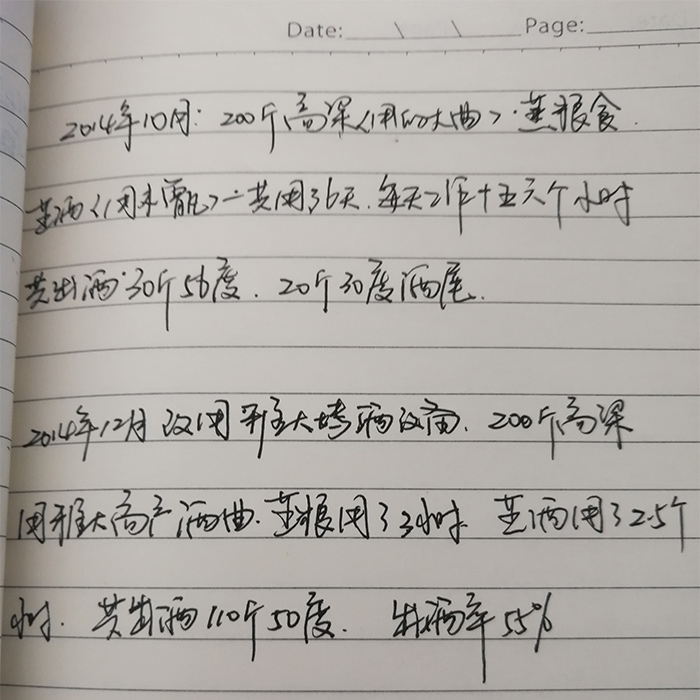 Date: \ \ Page:
2014年10月: 200斤高梁(用的大曲)·蒸粮食
蒸酒(用木甑)一共用了6天.每天工作十五六个小时
共出酒:30斤56度. 20斤30度酒尾.
2014年12月改用雅大烤酒设备. 200斤高梁
用雅大高产酒曲.蒸粮用了3小时 蒸酒用了2.5个
小时. 共出酒110斤50度. 出酒率55%